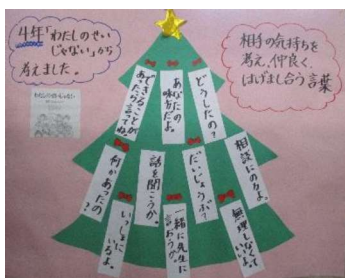 4年「わたしのせい
じゃない」から
考えました。
相手の気持ちを
考え、仲良く、
はげまし合う言葉
どうしたの?
あなたの
味方だよ。
できることが
あったら言ってね。
相談にのるよ。
だいじょうぶ?
話を聞こうか。
何かあったの?
無理しなくて
いいよ。
一緒に先生に
言おうか。
いっしょに
いるよ。